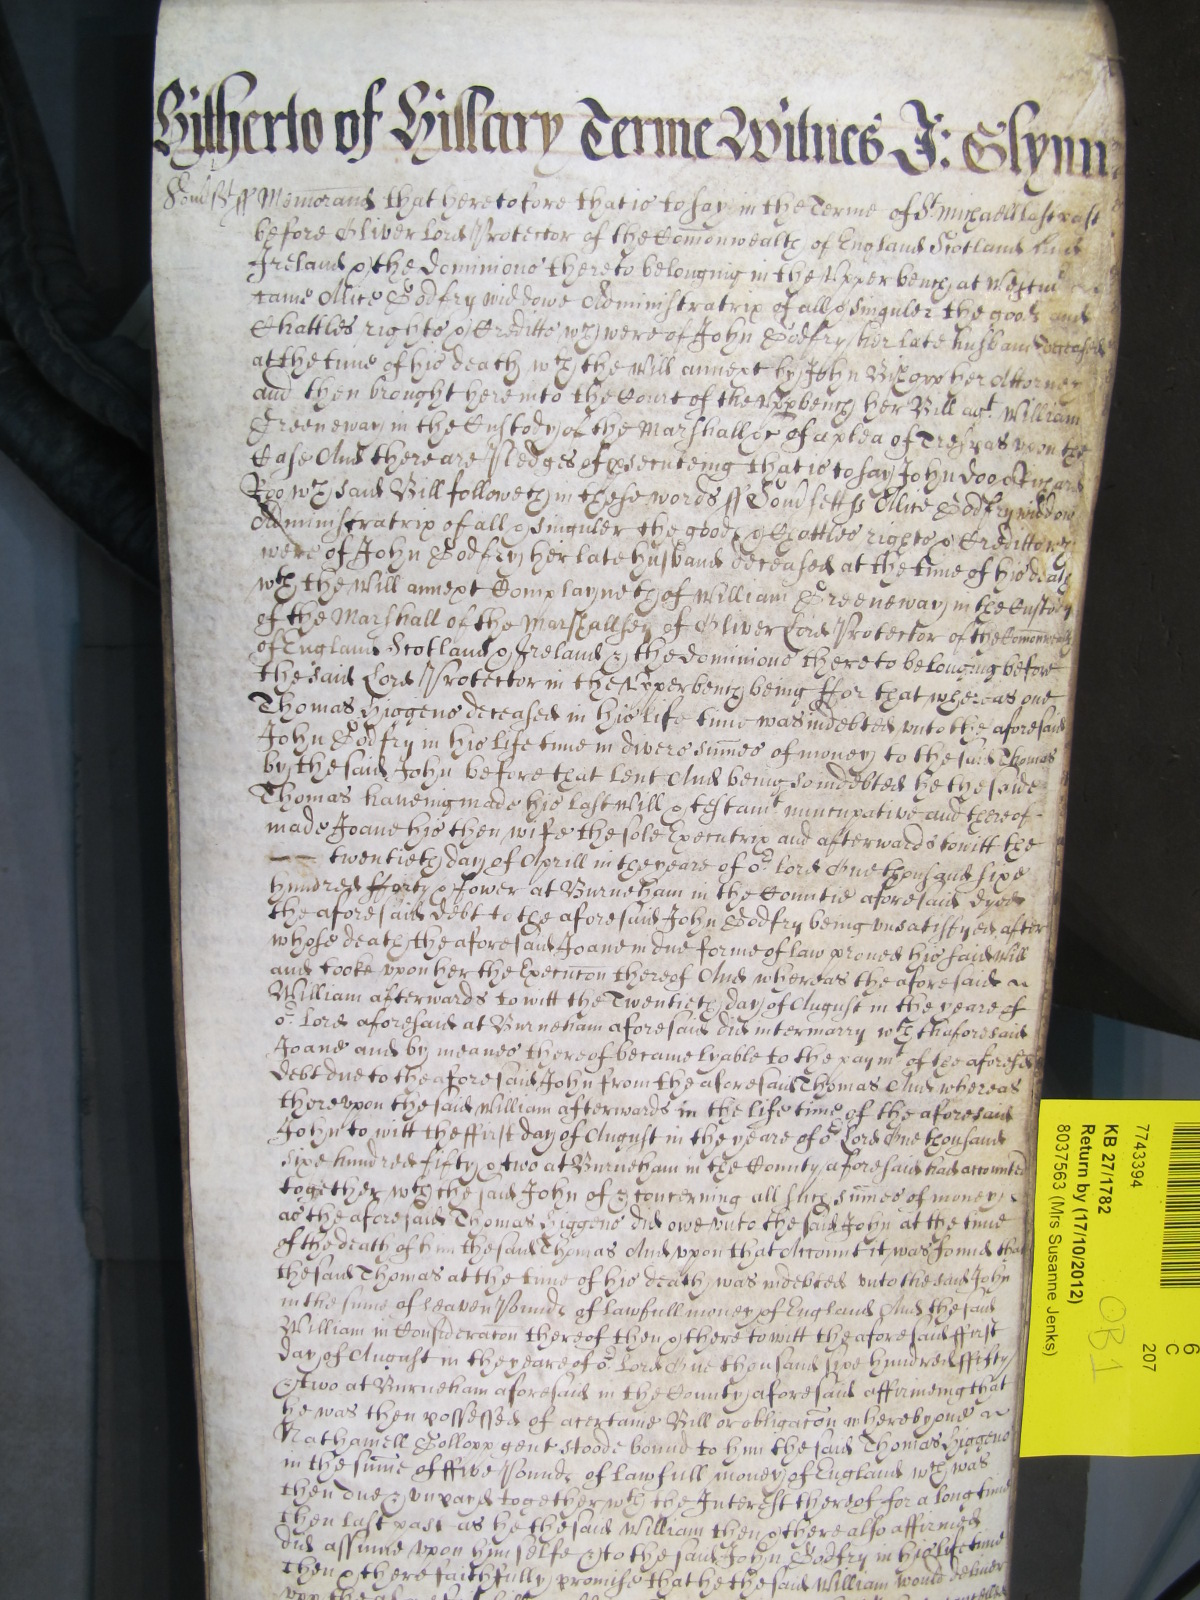 Hitherto of Hillary Terme Witnes J: Glynn
Som̄sett ss Memorand that heretofore that is to say in the Terme of St. Michaell last past
before Oliver Lord Protector of the Com̄onwealth of England Scotland And
Ireland & the dominions thereto belonging in the Upper bench at
came Alice Godfry widdowe Administratrix of all & singuler the goods and
Chattles rights & Creditts wch were of John Godfry her late husband deceased
at the time of his death wth the Will annext by John her Attorney
and then brought here into the Court of the Uppbench her Bill agt. William
Greeneway in the Custody of the Marshall &c of a plea of Trespas upon the
Case And there are Pledges of psecuteing that is to say John Doo & Richard
Roo wch said Bill followeth in these words ss Som̄sett ss Alice Godfry widdow
Administratrix of all & singuler the goods & Chattles rights & Creditts wch
were of John Godfry her late husband deceased at the time of his death
wth the Will annext Complayneth of William Greeneway in the Custody
of the Marshall of the Marshallsey of Oliver Lord Protector of the Com̄onwealth
of England Scotland & Ireland & the dominions thereto belonging before
the said Lord Protector in the Upper bench being ffor that whereas one
Thomas Higgens deceased in his life time was indebted unto the aforesaid
John Godfry in his life time in divers sum̄es of money to the said Thomas
by the said John before that lent And being so indebted he the saide
Thomas haveing made his last Will & testamt nuncupative and thereof -
made Joane his then wife the sole Executrix and afterwards to witt the
— twentieth day of Aprill in the yeare of or. Lord One thousand sixe
hundred fforty & fower at Burneham in the Countie aforesaid dyed
the aforesaid debt to the aforesaid John Godfry being unsatisfyed after
whose death the aforesaid Joane in due forme of law proved his said Will
and tooke upon her the Execuc̄on thereof And whereas the aforesaid
William afterwards to witt the Twentieth day of August in the yeare of
or. Lord aforesaid at Burneham aforesaid did intermarry wth thaforesaid
Joane and by meanes thereof became lyable to the paymt of the aforesaid
debt due to the aforesaid John from the aforesaid Thomas And whereas
thereupon the said William afterwards in the life time of the aforesaid
John to witt the ffirst day of August in the yeare of or Lord One thousand
sixe hundred fifty & two at Burneham in the County aforesaid had accounted
together wth the said John of & concerning all such sum̄es of money
as the aforesaid Thomas Higgens did owe unto the said John at the time
of the death of him the said Thomas And upon that Account it was found that
the said Thomas at the time of his death was indebted unto the said John
in the sum̄e of Pounds of lawfull money of England And the said
William in Considerac̄on thereof then & there to witt the aforesaid ffirst
day of August in the yeare of or. Lord One thousand sixe hundred ffifty
& two at Burneham aforesaid in the County aforesaid affirmeing that
he was then possessed of a certaine Bill or obligac̄on whereby one
Nathaniell gent stoode bound to him the said Thomas Higgens
in the sum̄e of ffive Pounds of lawfull money of England wch was
then due & unpayd together wth the Interest thereof for a long time
then last past as he the said William then & there also affirmed
did assume upon himselfe & to the said John Godfry in his life time
then & there faithfully promise that he the said William would deliver
6
C
207
7743394
KB 27/1782
Return by (17/10/2012)
8037563 (Mrs Susanne Jenks)
OB1